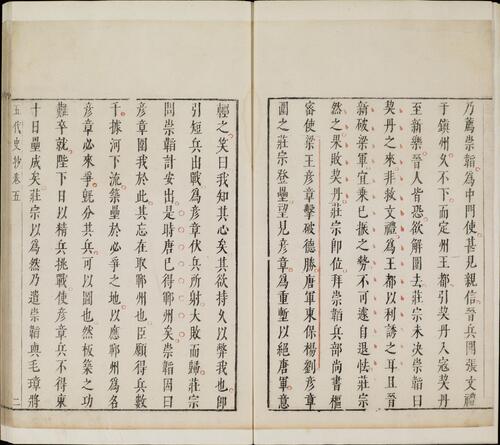 乃薦崇韜為中門使甚見親信晉兵圍張文禮
于鎮州久不下而定州王都引契丹入寇契丹
至新樂晉人皆恐欲解圍去莊宗未決崇韜曰
契丹之來非救文禮為王都以利誘之耳且晉
新破梁軍宜乘已振之勢不可遽自退怯莊宗
然之果敗契丹莊宗即位拜崇韜兵部尚書樞
密使梁王彥章擊破德勝唐軍東保楊劉彥章
圍之莊宗登壘望見彥章為重塹以絕唐軍意
輕之笑曰我知其心矣其欲持久以弊我也即
引短兵出戰為彥章伏兵所射大敗而歸莊宗
問崇韜計安出是時唐已得鄆州矣崇韜因曰
彥章圍我於此其志在取鄆州也臣願得兵數
千據河下流築壘於必爭之地以應鄆州為名
彥章必來爭既分其兵可以圖也然板築之功
難卒就陛下日以精兵挑戰使彥章兵不得東
十日壘成矣莊宗以為然乃遣崇韜與毛璋將
五代史抄卷五
二